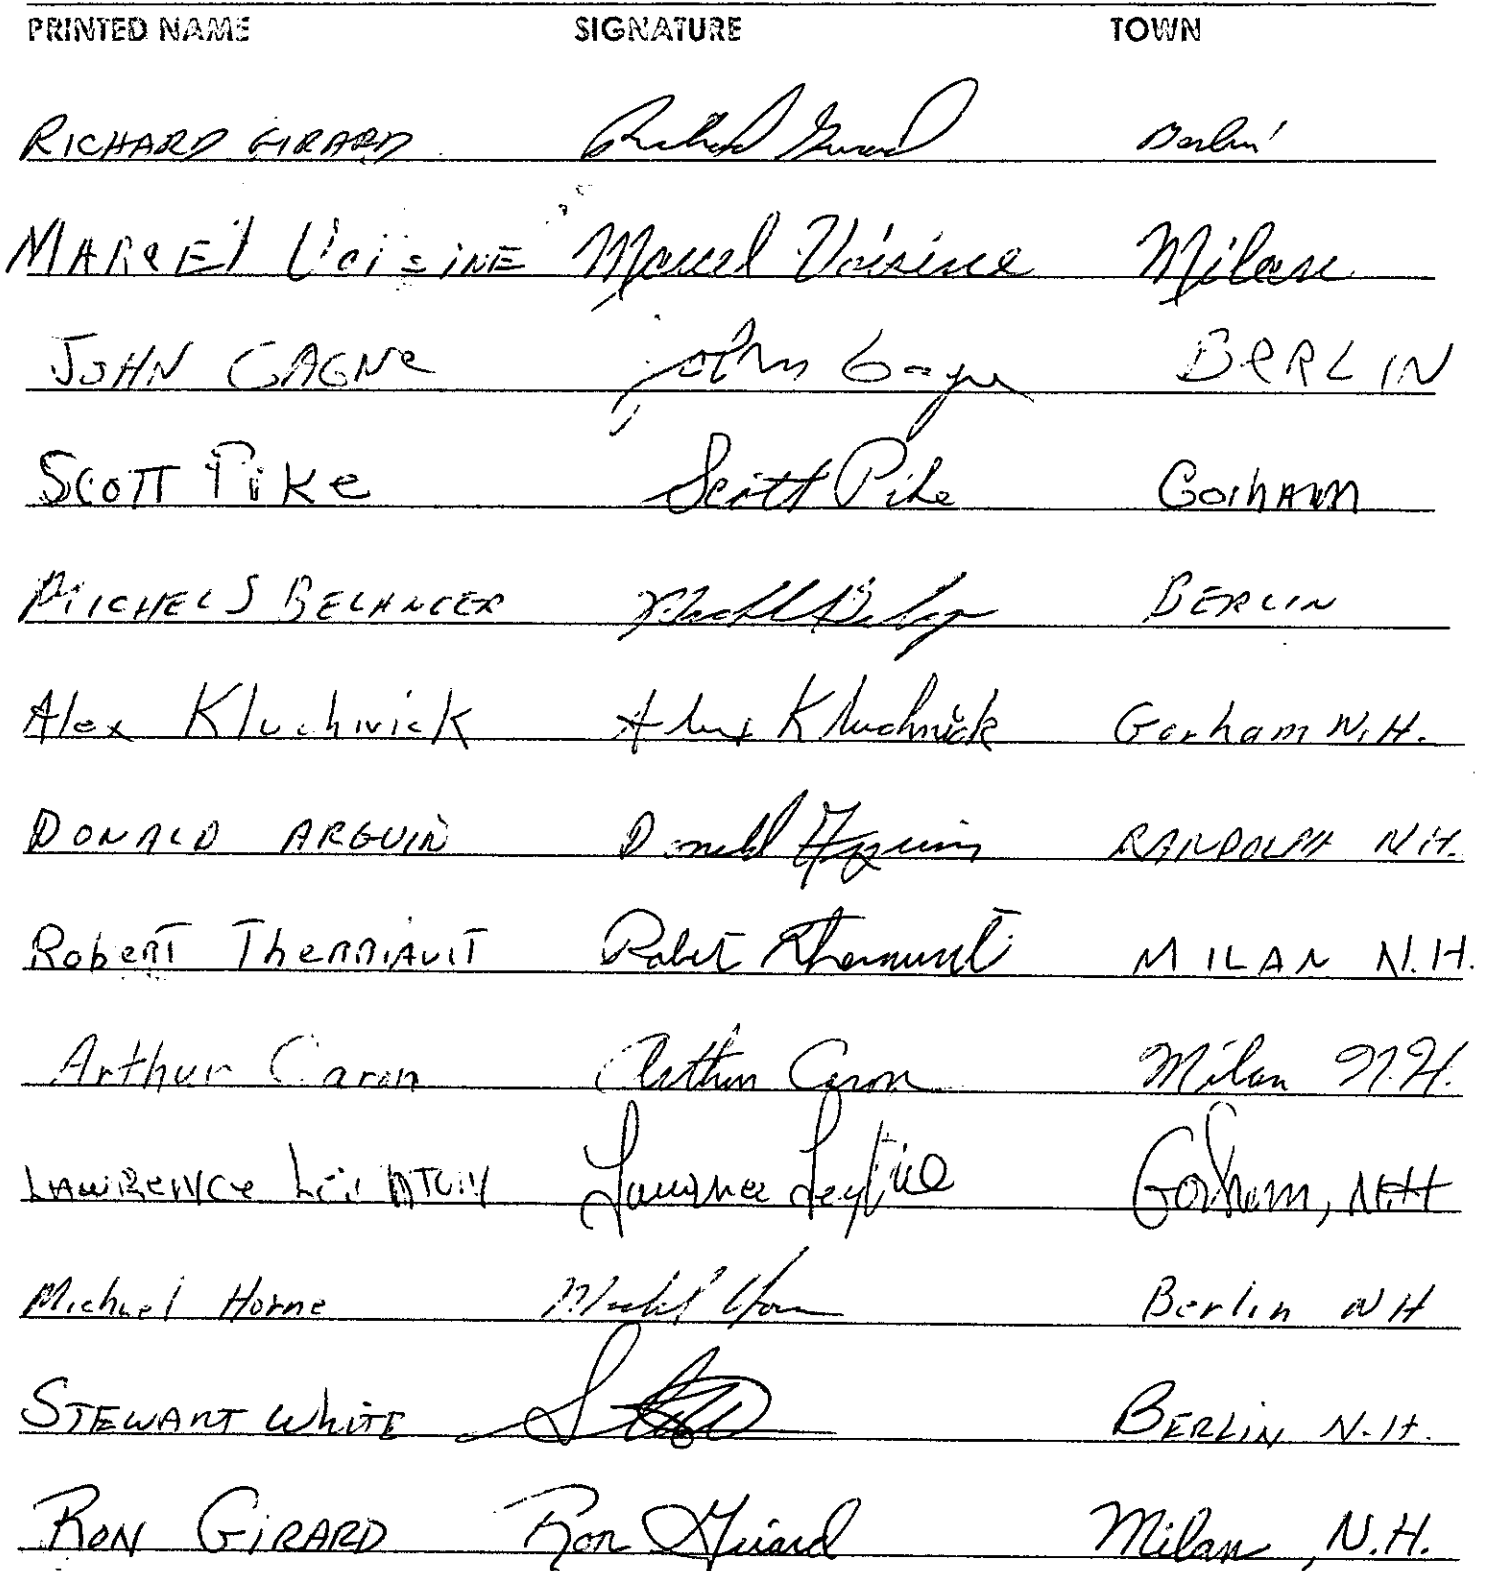 PRINTED NAME SIGNATURE TOWN
RICHARD GIRARD Richard Girard Berlin
MARCEl VoisiNE Marcel Voisine Milan
JOHN GAGNe John Gagne BeRLIN
SCOTT PiKe Scott Pike GorhAM
MICHEL S BELANGER BERLIN
Alex Kluchnick Alex Kluchnick Gorham N.H.
DONALD ARGUIN Donald Arguin RANDOLPH N.H.
RobeRT TheRRiAulT Robert Therriault MILAN N.H.
Arthur Caron Arthur Caron Milan N.H.
LAWReNCe Lawrence Gorham, N.H
Michael Horne Michael Horne Berlin NH
STEWART WhiTE BERLIN N.H.
RON GiRARD Ron Girard Milan, N.H.